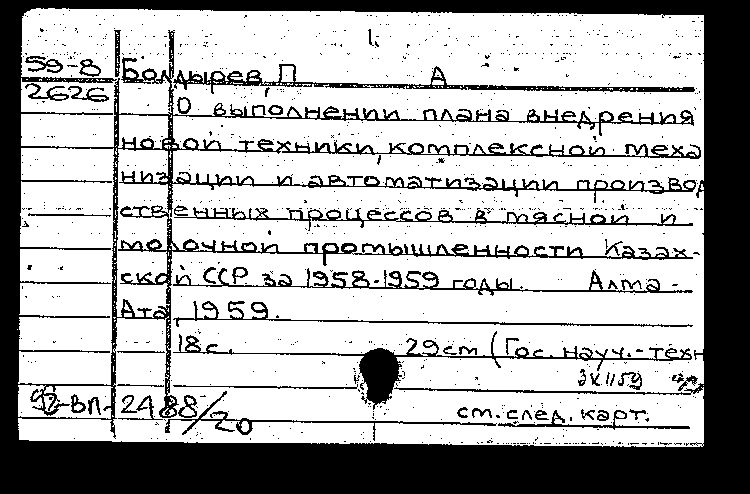 1.
59-8 Болдырев, П А
2626 О выполнении плана внедрения
новой техники, комплексной меха
низации и автоматизации производ
ственных процессов в мясной и
молочной промышленности Казах-
ской ССР за 1958-1959 годы. Алма-
Ата, 1959.
18с. 29см (Гос. науч.-техн
3к1159
92-ВП-2488/20 см. след. карт.